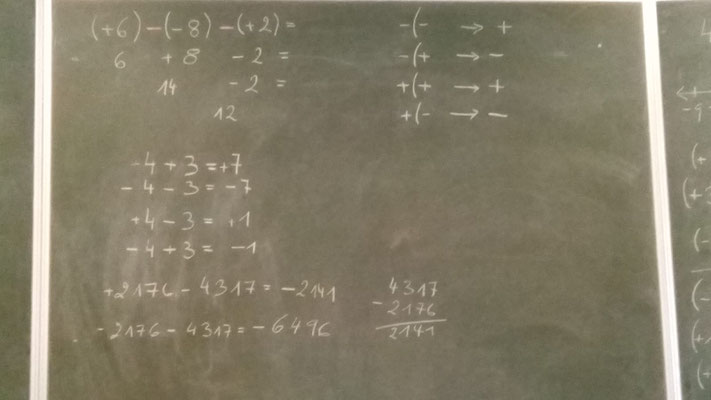 (+6)-(-8)-(+2)=
6 +8 -2 =
14 -2 =
12
-(- → +
-(+ → -
+(+ → +
+(- → -
+4+3=+7
-4-3=-7
+4-3=+1
-4+3=-1
+2176-4317=-2141
-2176-4317=-6496
4317
-2176
2141